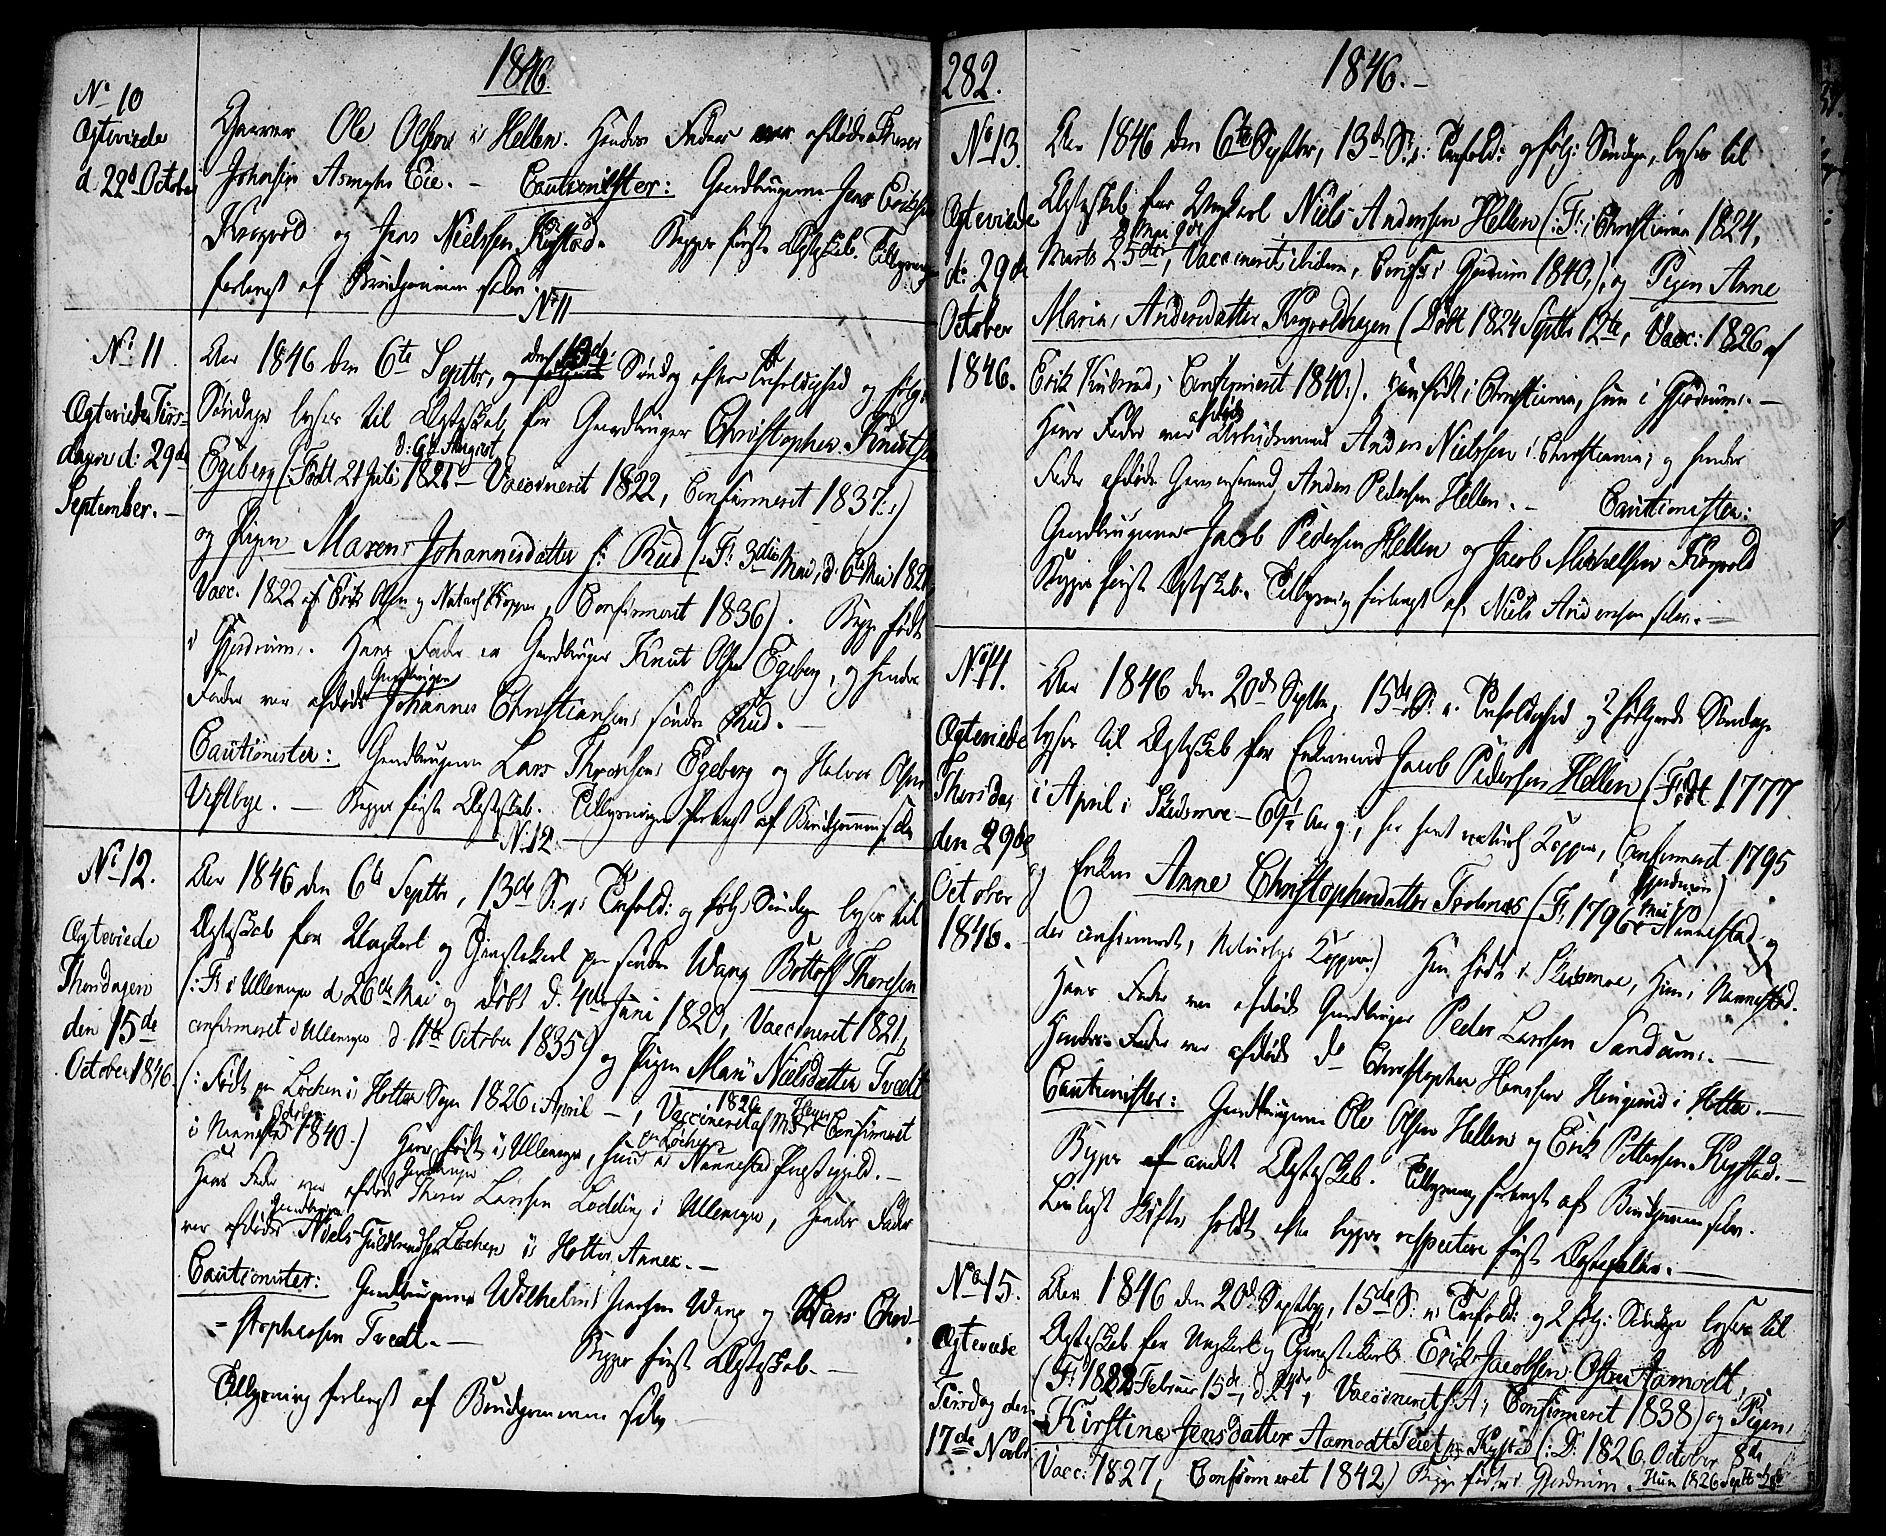 1846.
No 10
Ægteviede
d. 22de October
Gaarver Ole Olsen i Hellen. Hendes Fader var afdøde
Johnsen Eie. – Cautionister: Gaardbrugerne Jens Eriksen
Krogvold og Jens Nielssen Kogstad. Begges første Ægteskab. Tillysning
forlangt af Brudgommen selv.
No 11
No 11
Ægteviede Tirs-
dagen d: 29de
September. –
Aar 1846 den 6te Septbr, den 13de Søndag efter Trefoldighed og følgende
Søndage lyses til Ægteskab for Gaardbruger Christopher Knutsen
d: 6te August
Egeberg (: Født 21 Juli 1821 – Vaccineret 1822, Confirmeret 1837 :)
og Pigen Maren Johannesdatter s: Rud (: F: 3die Mai, d. 6te Mai 1821
Vacc. 1822 af Erik Olsen og Naturl Kopper, Confirmeret 1836). Begge født
i Gjerdrum. Hans Fader er Gaardbruger Knut Olsen Egeberg, og hendes
Gaardbruger
Fader var afdøde Johannes Christiansen søndre Rud. –
Cautionister: Gaardbrugerne Lars Thoresen Egeberg og Halvor Olsen
Vestbye. – Begges første Ægteskab. Tillysningen forlangt af Brudgommen selv
No 12
No 12.
Ægteviede
Thorsdagen
den 15de
October 1846.
Aar 1846 den 6te Septbr, 13de S. e. Trefold: og følg: Søndage lyses til
Ægteskab for Ungkarl og Tjenestekarl paa søndre Wang Bottolf Thoresen
(: F: i Ullensager d 26de Mai og døbt d. 4de Juni 1820, Vaccineret 1821,
confirmeret i Ullensager d. 11te October 1835) og Pigen Mari Nielsdatter Tvedt
(: Født paa Løchen i Holter Sogn 1826 i April –, Vaccineret 1826 af Confirmeret
October
i Nannestad 1840.) Han født i Ullensager, hun paa Løchen i Nannestad Præstegjeld. –
Gaardbruger
Hans Fader var afdøde Thore Larssen Lodding i Ullensager, Hendes Fader
Gaardbruger
var afdøde Niels Guldbrandsen Løchen i Holter Annex. –
Cautionister: Gaardbrugerne Wilhelm Jensen Wang og Lars Chri-
stophersen Tvedt. – Begges første Ægteskab. –
Tillysning forlangt af Brudgommen selv.
282.
1846. –
No 13.
Ægteviede
d: 29de
October
1846.
Aar 1846 den 6te Septbr, 13de S. e: Trefold: og følg: Søndage, lyses til
Ægteskab for Ungkarl Niels Andersen Hellen (: F: i Christiania 1824,
Mai 9de
Marts 25de, Vaccineret ibidem, Conf: i Gjerdrum 1840,), og Pigen Anne
Maria Andersdatter Krogvoldhagen (Døbt 1824 Septbr 12te, Vacc: 1826 af
Erik, Confirmeret 1840.). Han født i Christiania, hun i Gjerdrum. –
afdøde
Hans Fader var Arbeidsmand Anders Nielssen i Christiania, og hendes
Fader afdøde Anders Pedersen Hellen. – Cautionister:
Gaardbrugerne Jacob Pedersen Hellen og Jacob Michelsen Krogvold
Begges første Ægteskab. Tillysning forlangt af Niels Andersen selv. –
No 14.
Ægteviede
Thorsdag
den 29de
October
1846.
Aar 1846 den 20de Septbr, 15de S. e. Trefoldighed og 2 følgende Søndage
lyses til Ægteskab for Enkemand Jacob Pedersen Hellen (: Født 1777
i April i Skedsmoe – 69½ Aar g:, har havt naturl: Kopper, Confirmeret 1795
Gjerdrum)
og Enken Anne Christophersdatter Trolnæs (F. 1796 Mai i Nannestad og
der confirmeret, Naturlige Kopper.) Han født i Skedsmoe, Hun i Nannestad.
Hans Fader var afdøde Gaardbruger Peder Larssen Sandum. –
Hendes Fader var afdøde do Christopher Hanssen Ringerud i Holter. –
Cautionister: Gaardbrugerne Ole Olsen Hellen og Erik Pettersen Kogstad. –
Begges andet Ægteskab. Tillysning forlangt af Brudgommen selv.
Lovligt Skifte holdt efter begges respective første Ægtefæller. –
No 15.
Ægteviede
Tirsdag den
17de Novbr
Aar 1846 den 20de Septbr, 15de S: e: Trefold: og 2 følg: Søndage lyses til
Ægteskab for Ungkarl og Tjenestekarl Erik Jacobsen Østre Aamodt,
(F: 1822 Februar 15de, d. 24de, Vaccineret s: A:, Confirmeret 1838) og Pigen
Kirstine Jensdatter Aamodt Teiet p: Kogstad (: D: 1826 October 8de
Vacc: 1827, Confirmeret 1842) Begge fødte i Gjerdrum. Hun 1826 Septbr